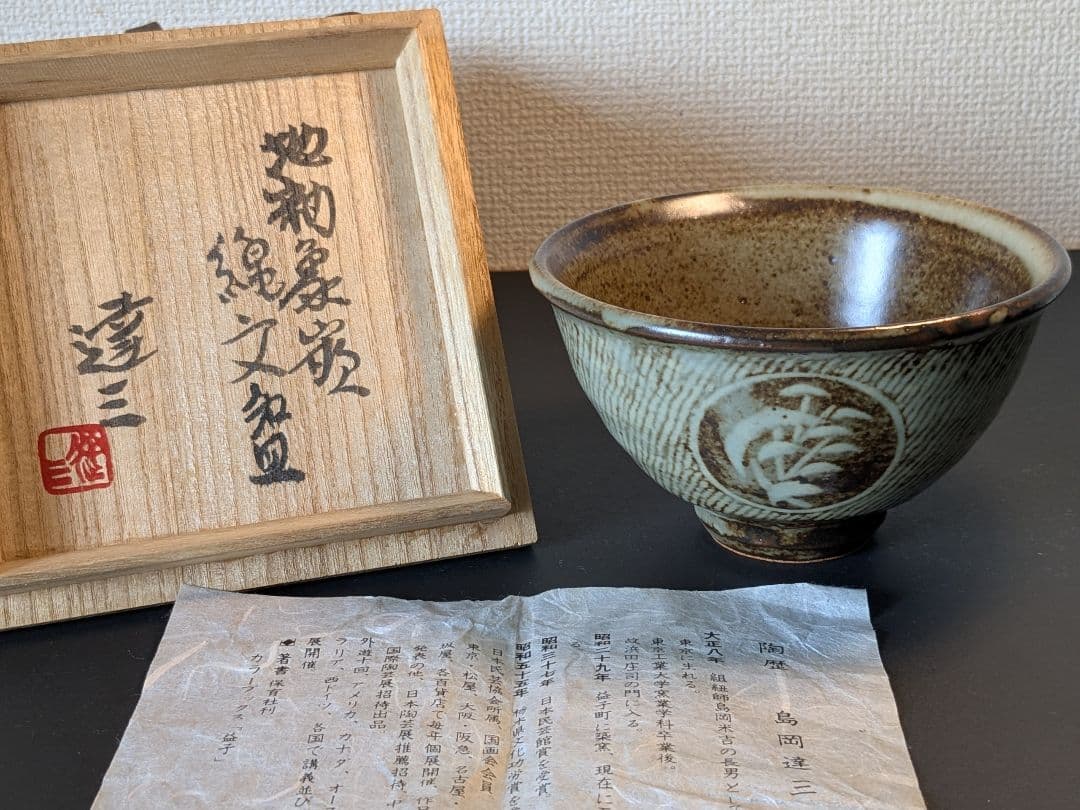 地釉象嵌
縄文盌
達三
陶歴 島岡達三
大正八年 組紐師島岡米吉の長男と
東京に生れる。
東京工業大学窯業科卒業後。
故浜田庄司の門に入る
昭和二十九年 益子町に築窯、現在に
る。
昭和三十七年 日本民芸館賞を受賞
昭和五十五年 栃木県文化功労賞を
日本民芸協会所属、国画会会員
東京・松屋、大阪・阪急、名古屋・
坂屋、各百貨店で毎年個展開催、作
発表の他、日本陶芸展推薦招待、
国際陶芸展招待出品
外遊十回、アメリカ、カナダ、オース
ラリア、西ドイツ、各国で講義並び
展開催
著書 保育社刊
カラーブックス「益子」